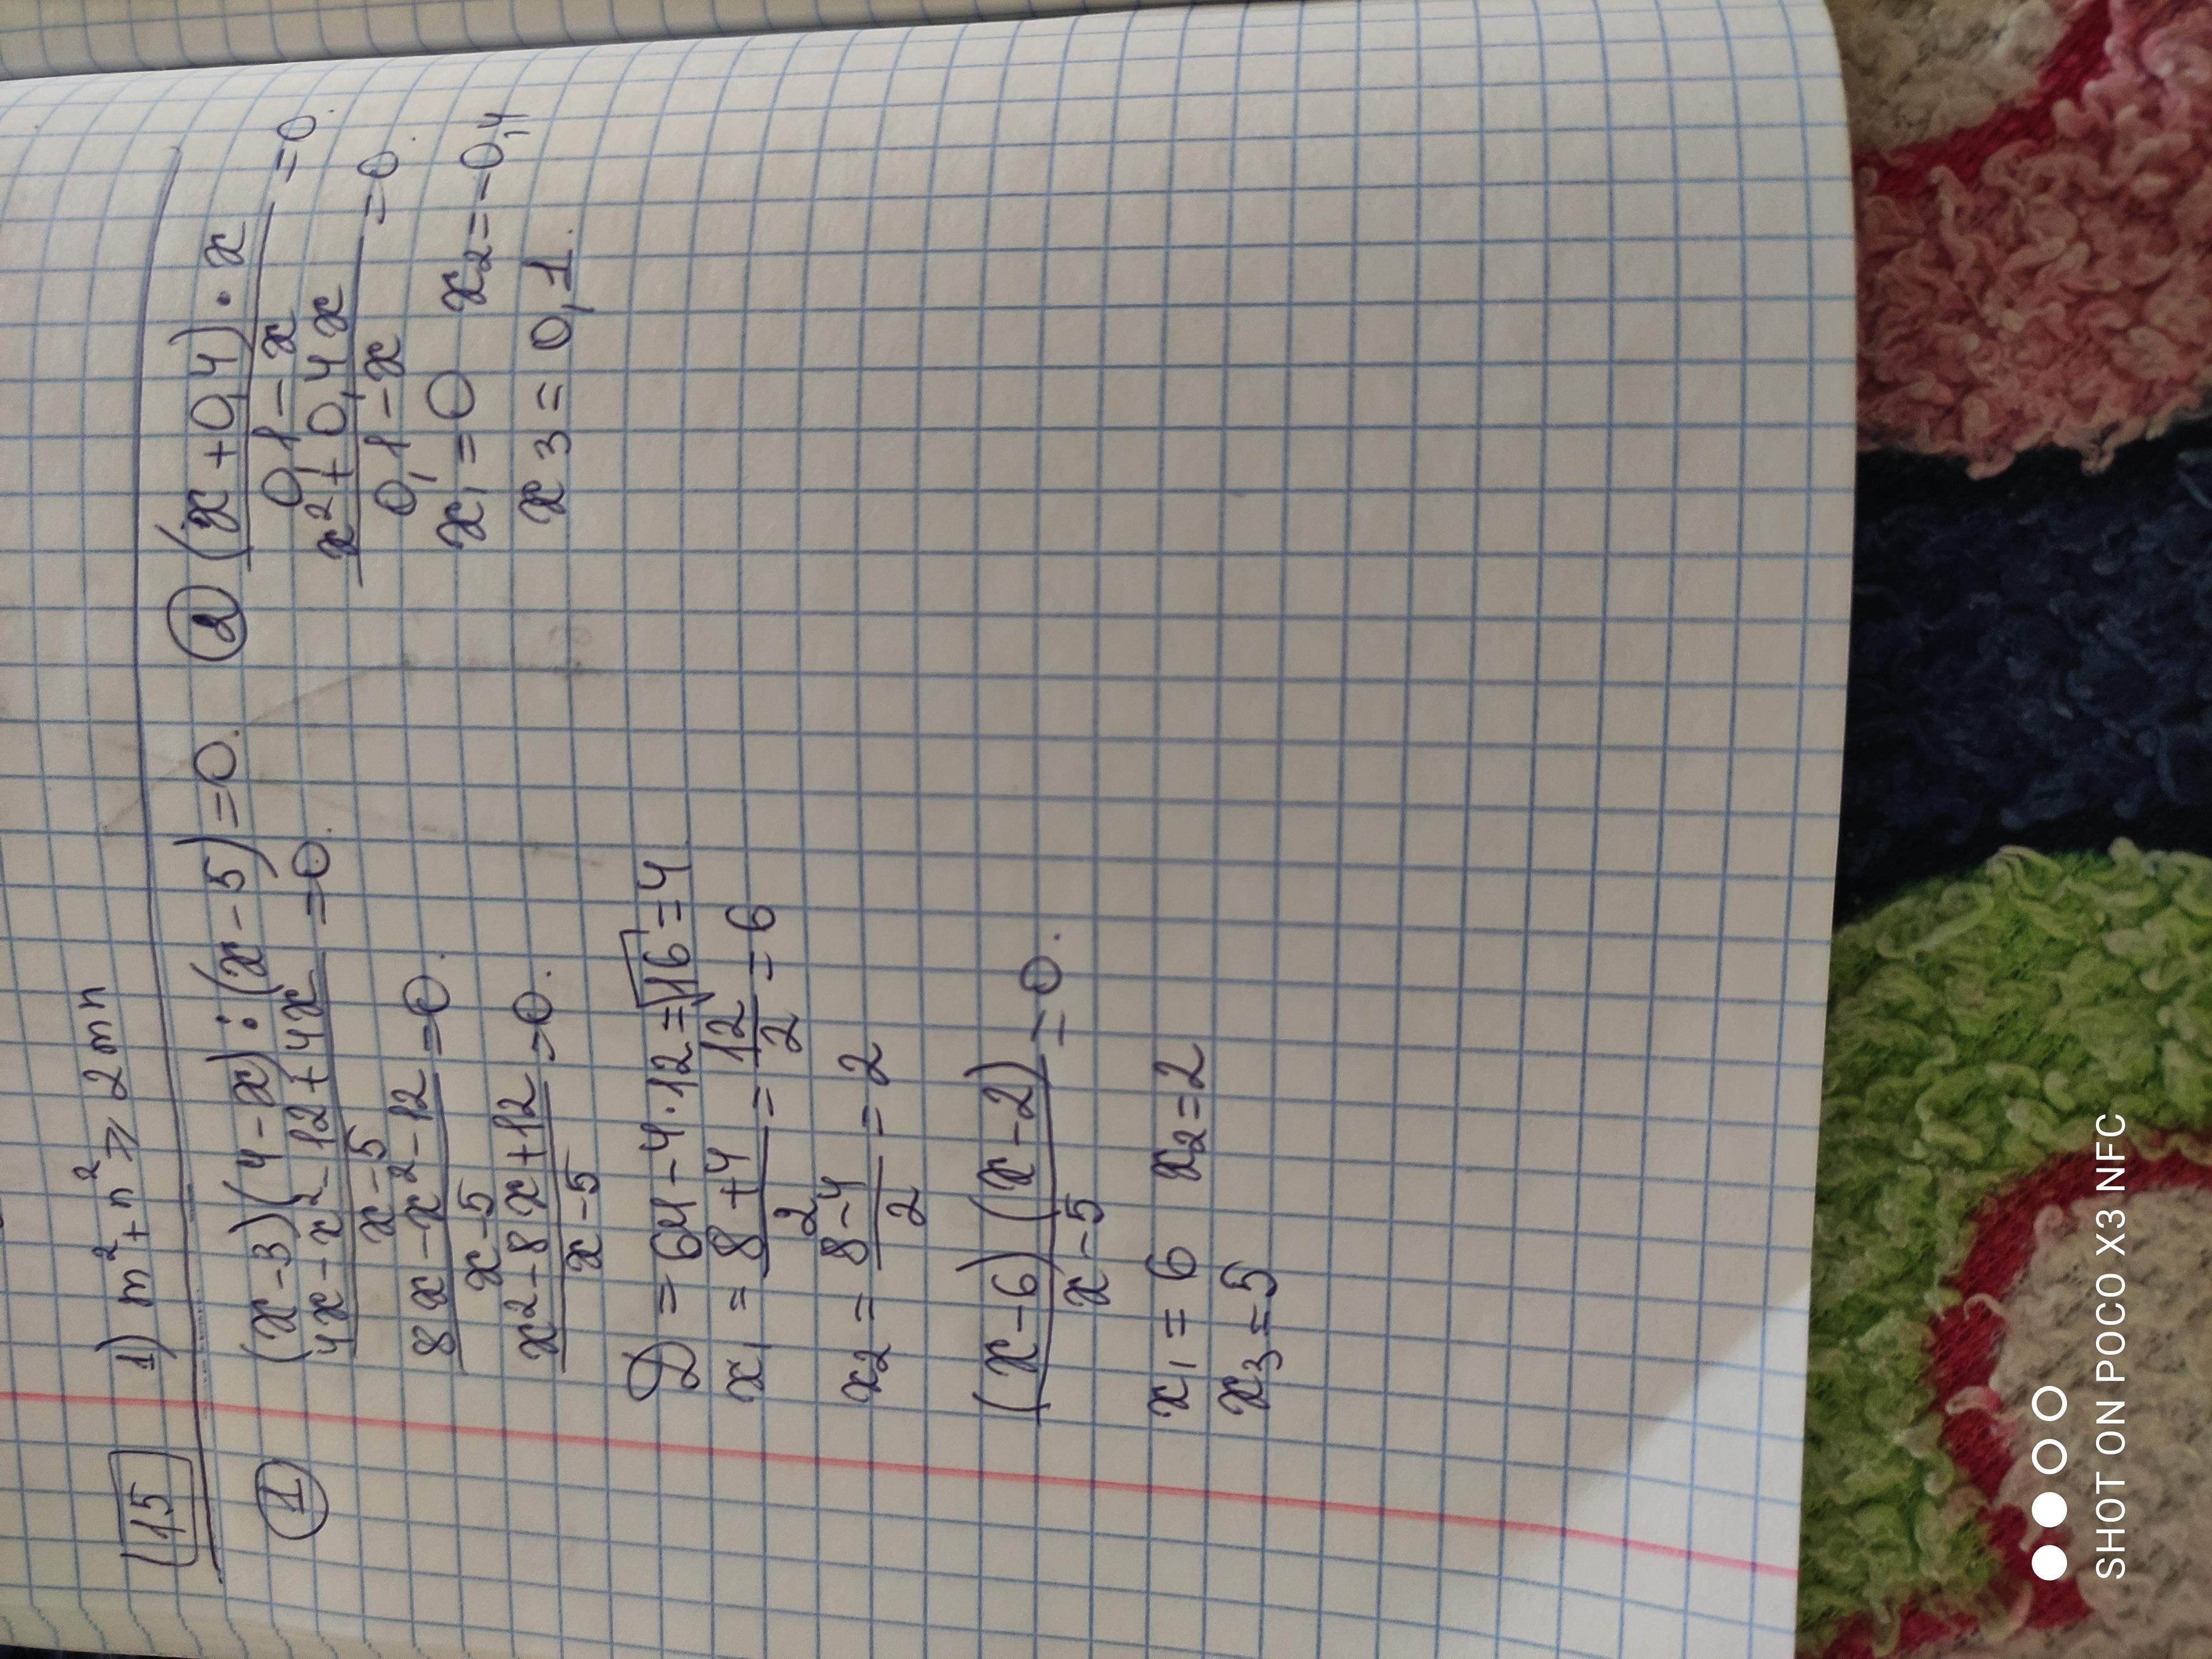 15 1) m²+n² ⩾ 2mn
① (x-3)(4-x):(x-5)=0.
4x-x²-12+4x
x-5
=0.
8x-x²-12
x-5
=0.
x²-8x+12
x-5
=0.
D = 64-4·12=√16=4
x₁ = 8+4/2 = 12/2 = 6
x₂ = 8-4/2 = 2
(x-6)(x-2)
x-5
=0.
x₁ = 6 x₂=2
x₃=5
② (x+0,4)·x
0,1-x
=0.
x²+0,4x
0,1-x
=0.
x₁=0 x₂=-0,4
x₃=0,1.
SHOT ON POCO X3 NFC